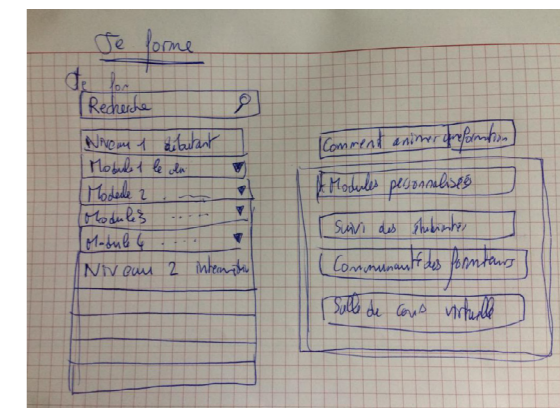 Je forme
Je for
Recherche
Niveau 1 débutant
Module 1 le
Module 2 . ......
Module 3 .....
Module 4 ....
Niveau 2
Comment animer une formation
Modules personnalisés
Suivi des étudiantes
Communauté des formateurs
Salle de cours virtuelle